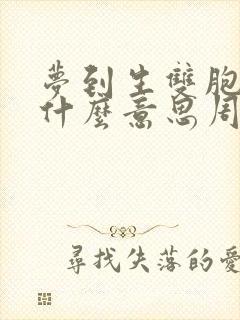 夢到生雙胞
什麼意思周
尋找失落的愛